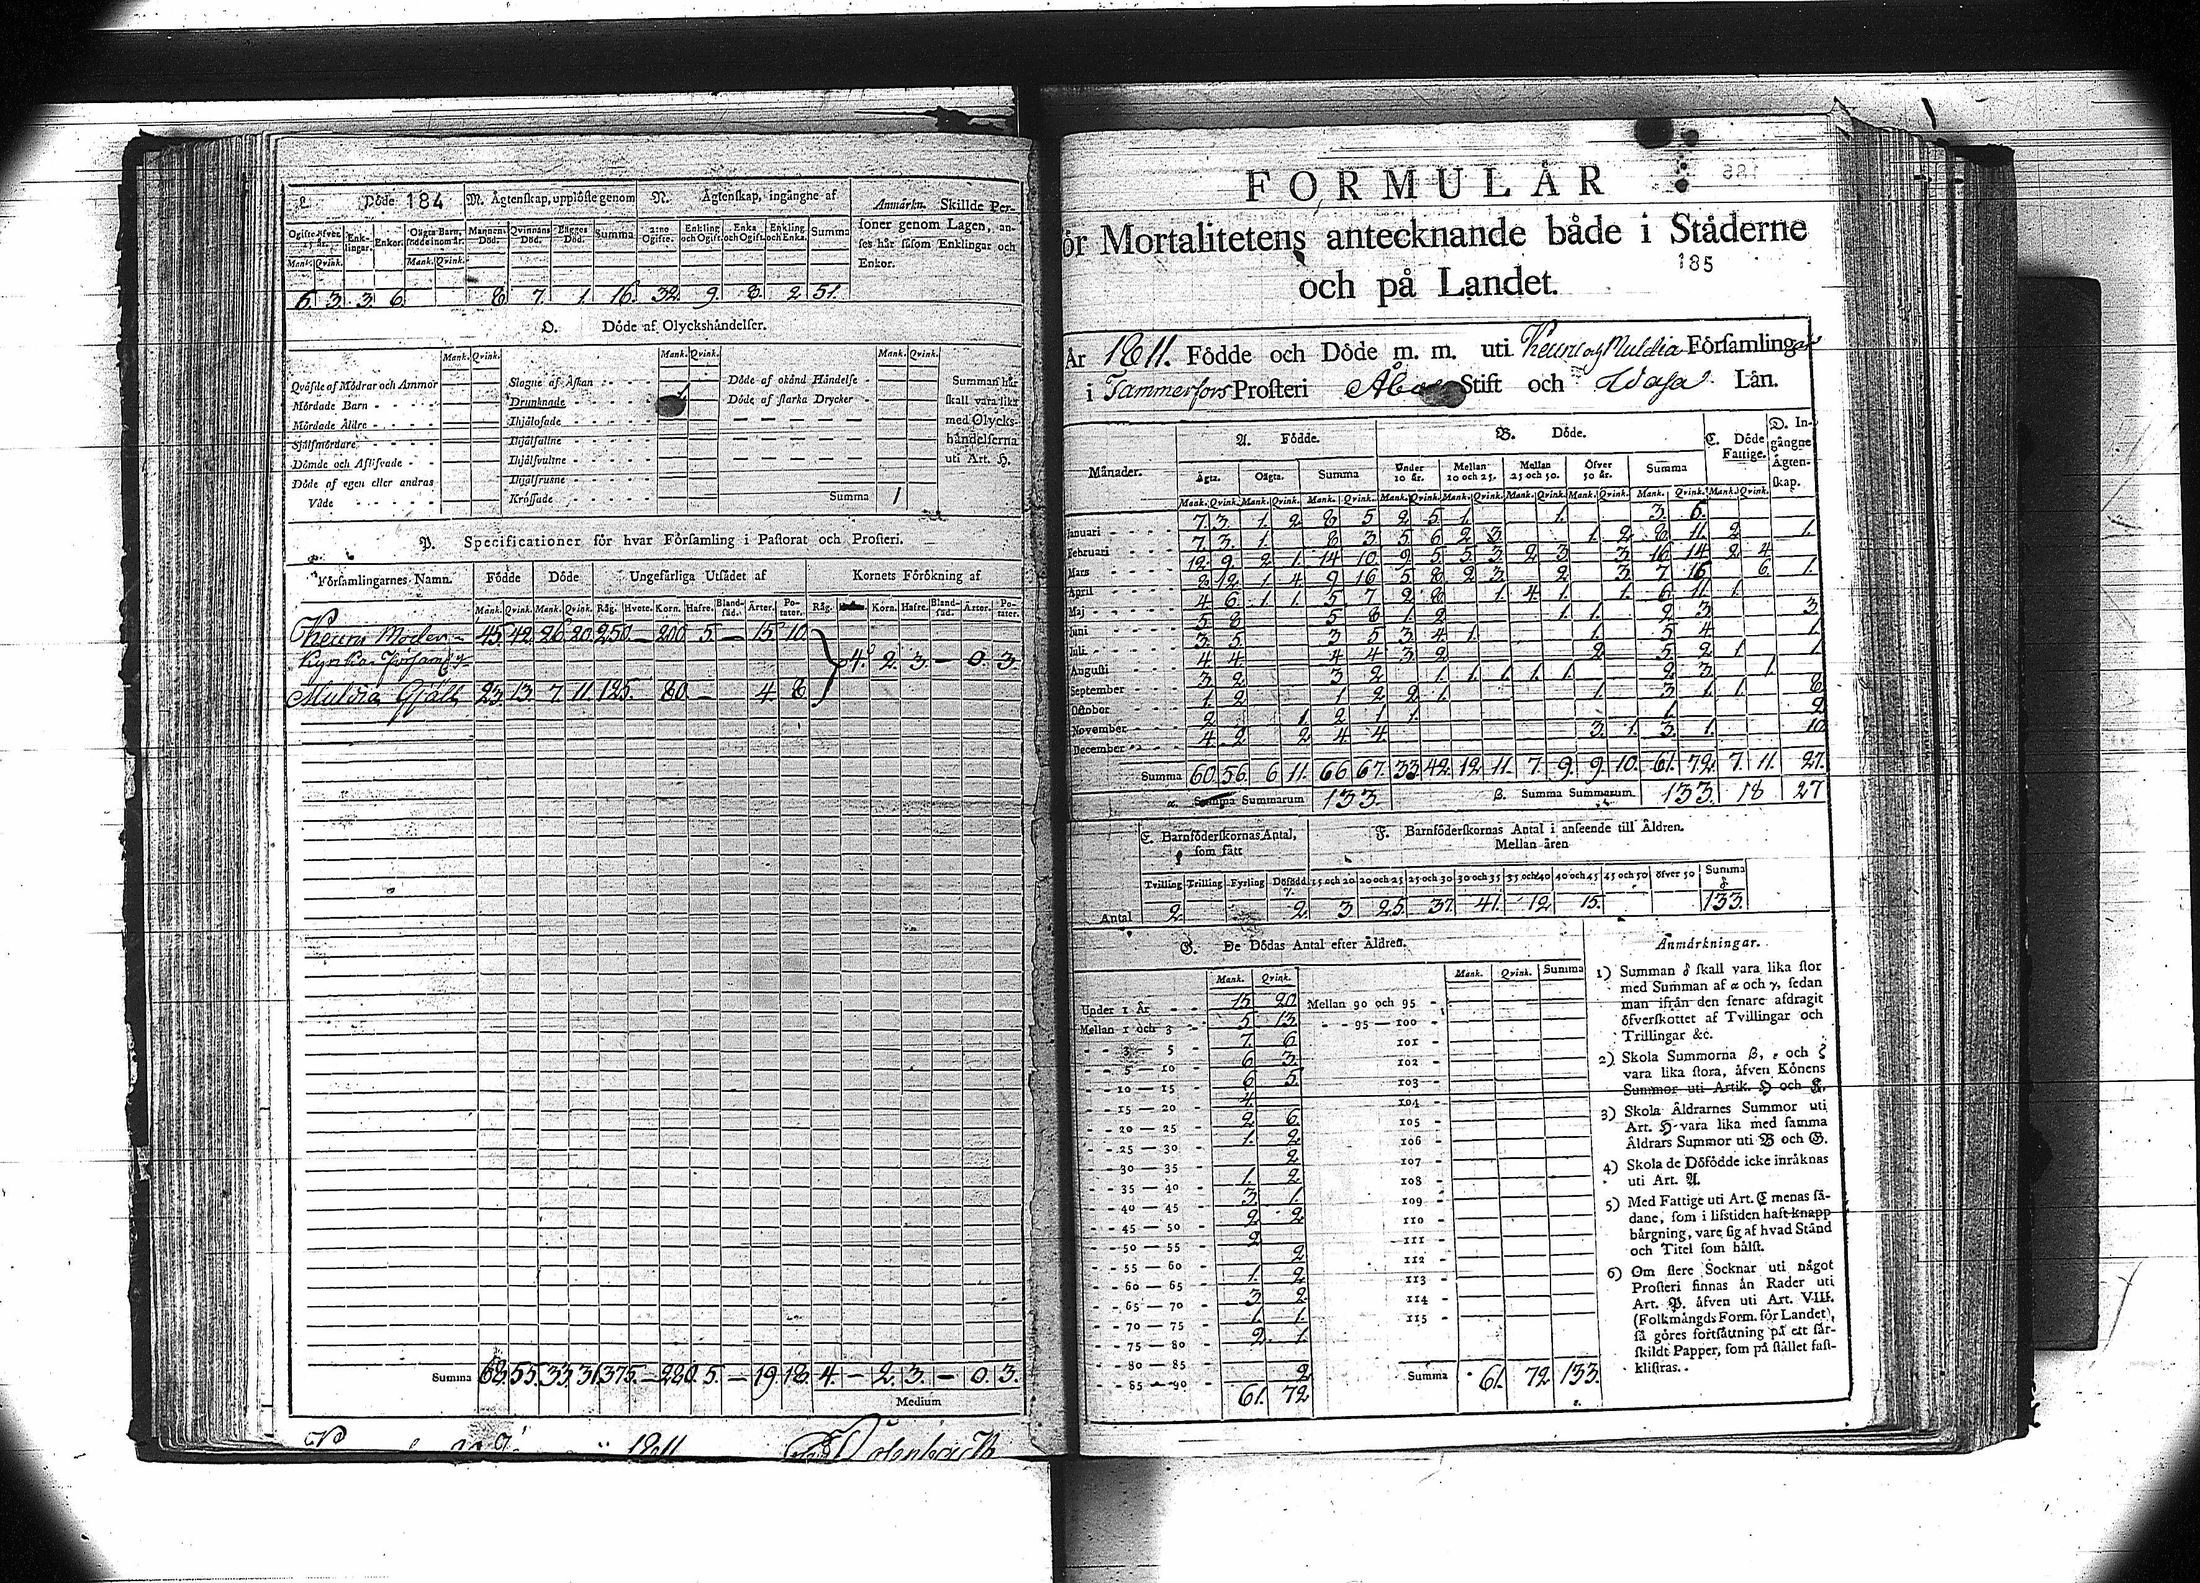 L. Döde 184 M. Ägtenskap, upplöste genom N. Ägtenskap, ingångne af Anmärkn. Skillde Personer genom Lagen, anses här såsom Enklingar och Enkor.
Ogifte öfver 15 år. Enklingar. Enkor. Oägta Barn, födde inom år. Mannens Död. Qvinnans Död. Bägges Död. Summa 2:ne Ogifte. Enkling och Ogift. Enka och Ogift. Enkling och Enka. Summa
Mank. Qvink. Mank. Qvink.
6 3 3 6 8 7 1 16 32 9 8 2 51
O. Döde af Olyckshändelser.
Mank. Qvink. Mank. Qvink. Mank. Qvink.
Qväfde af Mödrar och Ammor Slagne af Åskan Döde af okänd Händelse Summan här
Mördade Barn Drunknade 1 Döde af starka Drycker skall vara lika
Mördade Äldre Ihjälosade med Olycks-
Sjelfmördare Ihjälfallne händelserna
Dömde och Aflifvade Ihjälsvultne uti Art. H.
Döde af egen eller andras Ihjälfrusne
Våde Krossade Summa 1
P. Specificationer för hvar Församling i Pastorat och Prosteri.
Församlingarnes Namn. Födde Döde Ungefärliga Utsädet af Kornets Förökning af
Mank. Qvink. Mank. Qvink. Råg. Hvete. Korn. Hafre. Blandsäd. Ärter. Potater. Råg. Korn. Hafre. Blandsäd. Ärter. Potater.
Keuru Moder- 45 42 26 20 250 — 200 5 — 15 10
Kyrko Församl. 4. 2. 3. — 0. 3.
Muldia 23. 13. 7. 11. 125. 80 — 4. 8
Summa 68. 55. 33. 31. 375. — 280. 5. — 19 18. 4. — 2. 3. — 0. 3.
Medium
1811
FORMULÄR
ör Mortalitetens antecknande både i Städerne
185
och på Landet.
År 1811. Födde och Döde m. m. uti Keuru och Muldia Församlingar
i Tammerfors Prosteri Åbo Stift och Wasa Län.
Månader. A. Födde. B. Döde. C. Döde Fattige. D. Ingångne Ägtenskap.
Ägta. Oägta. Summa Under 10 år. Mellan 10 och 25. Mellan 25 och 50. Öfver 50 år. Summa
Mank. Qvink. Mank. Qvink. Mank. Qvink. Mank. Qvink. Mank. Qvink. Mank. Qvink. Mank. Qvink. Mank. Qvink. Mank. Qvink.
Januari 7. 3. 1. 2 8 5 2 5 1. 1. 3. 6.
Februari 7. 3. 1. 8 3 5 6 2 3 1. 2 8 11. 2 1.
Mars 12. 9. 2 1. 14 10. 9 5 5 3 2 3 3 16 14 2 4
April 8 12. 1 4 9 16 5 8 2 3. 2 3 7 16 6 1.
Maj 4 6. 1 1. 5 7 2 8 1. 4 1. 1. 6 11 1
Juni 5 8 5 8 1. 2 1. 1. 2 3 3
Juli 3. 5 3 5 3 4 1. 1. 5 4 1.
Augusti 4 4 4 4 3 2 2 5 2 1 1
September 3 2 3 2 1. 1. 1. 1. 1. 2 3. 1.
October 1. 2 1 2 2. 1. 1. 3 1. 1. 8
November 2 1. 2 1 1. 1. 2
December 4. 2 2 4 4. 3. 1. 3. 1. 10
Summa 60. 56. 6 11. 66 67. 33. 42. 12. 11. 7. 9. 9. 10. 61. 72. 7. 11. 27.
α. Summa Summarum 133. β. Summa Summarum. 133. 18 27
E. Barnföderskornas Antal, som fått F. Barnföderskornas Antal i anseende till Åldren. Mellan åren
Tvilling Trilling Fyrling Dödfödd. 15 och 20 20 och 25 25 och 30 30 och 35 35 och 40 40 och 45 45 och 50 öfver 50 Summa
γ. δ
Antal 2. 2. 3 25. 37. 41. 12 15. 133.
G. De Dödas Antal efter Åldren.
Mank. Qvink. Mank. Qvink. Summa
Under 1 År 15 20 Mellan 90 och 95
Mellan 1 och 3 5 13 95 — 100
3 — 5 7. 6 101
5 — 10 6 3. 102
10 — 15 6 5. 103
15 — 20 4. 104
20 — 25 2 6. 105
25 — 30 1. 2 106
30 — 35 2 107
35 — 40 1. 2 108
40 — 45 3 1. 109
45 — 50 2 2 110
50 — 55 2 111
55 — 60 2 112
60 — 65 1. 2 113
65 — 70 3 2. 114
70 — 75 1. 1. 115
75 — 80 2. 1.
80 — 85
85 — 90 2
61. 72 Summa 61. 72 133.
Anmärkningar.
1) Summan δ skall vara lika stor
med Summan af α och γ, sedan
man ifrån den senare afdragit
öfverskottet af Tvillingar och
Trillingar &c.
2) Skola Summorna β, ε och ζ
vara lika stora, äfven Könens
Summor uti Artik. H och K.
3) Skola Åldrarnes Summor uti
Art. H vara lika med samma
Åldrars Summor uti B och G.
4) Skola de Döfödde icke inräknas
uti Art. A.
5) Med Fattige uti Art. C menas så-
dane, som i lifstiden haft knapp
bärgning, vare sig af hvad Stånd
och Titel som hälst.
6) Om flere Socknar uti något
Prosteri finnas än Rader uti
Art. P. äfven uti Art. VIII.
(Folkmängds Form. för Landet),
så göres fortsättning på ett sär-
skildt Papper, som på stället fast-
klistras.